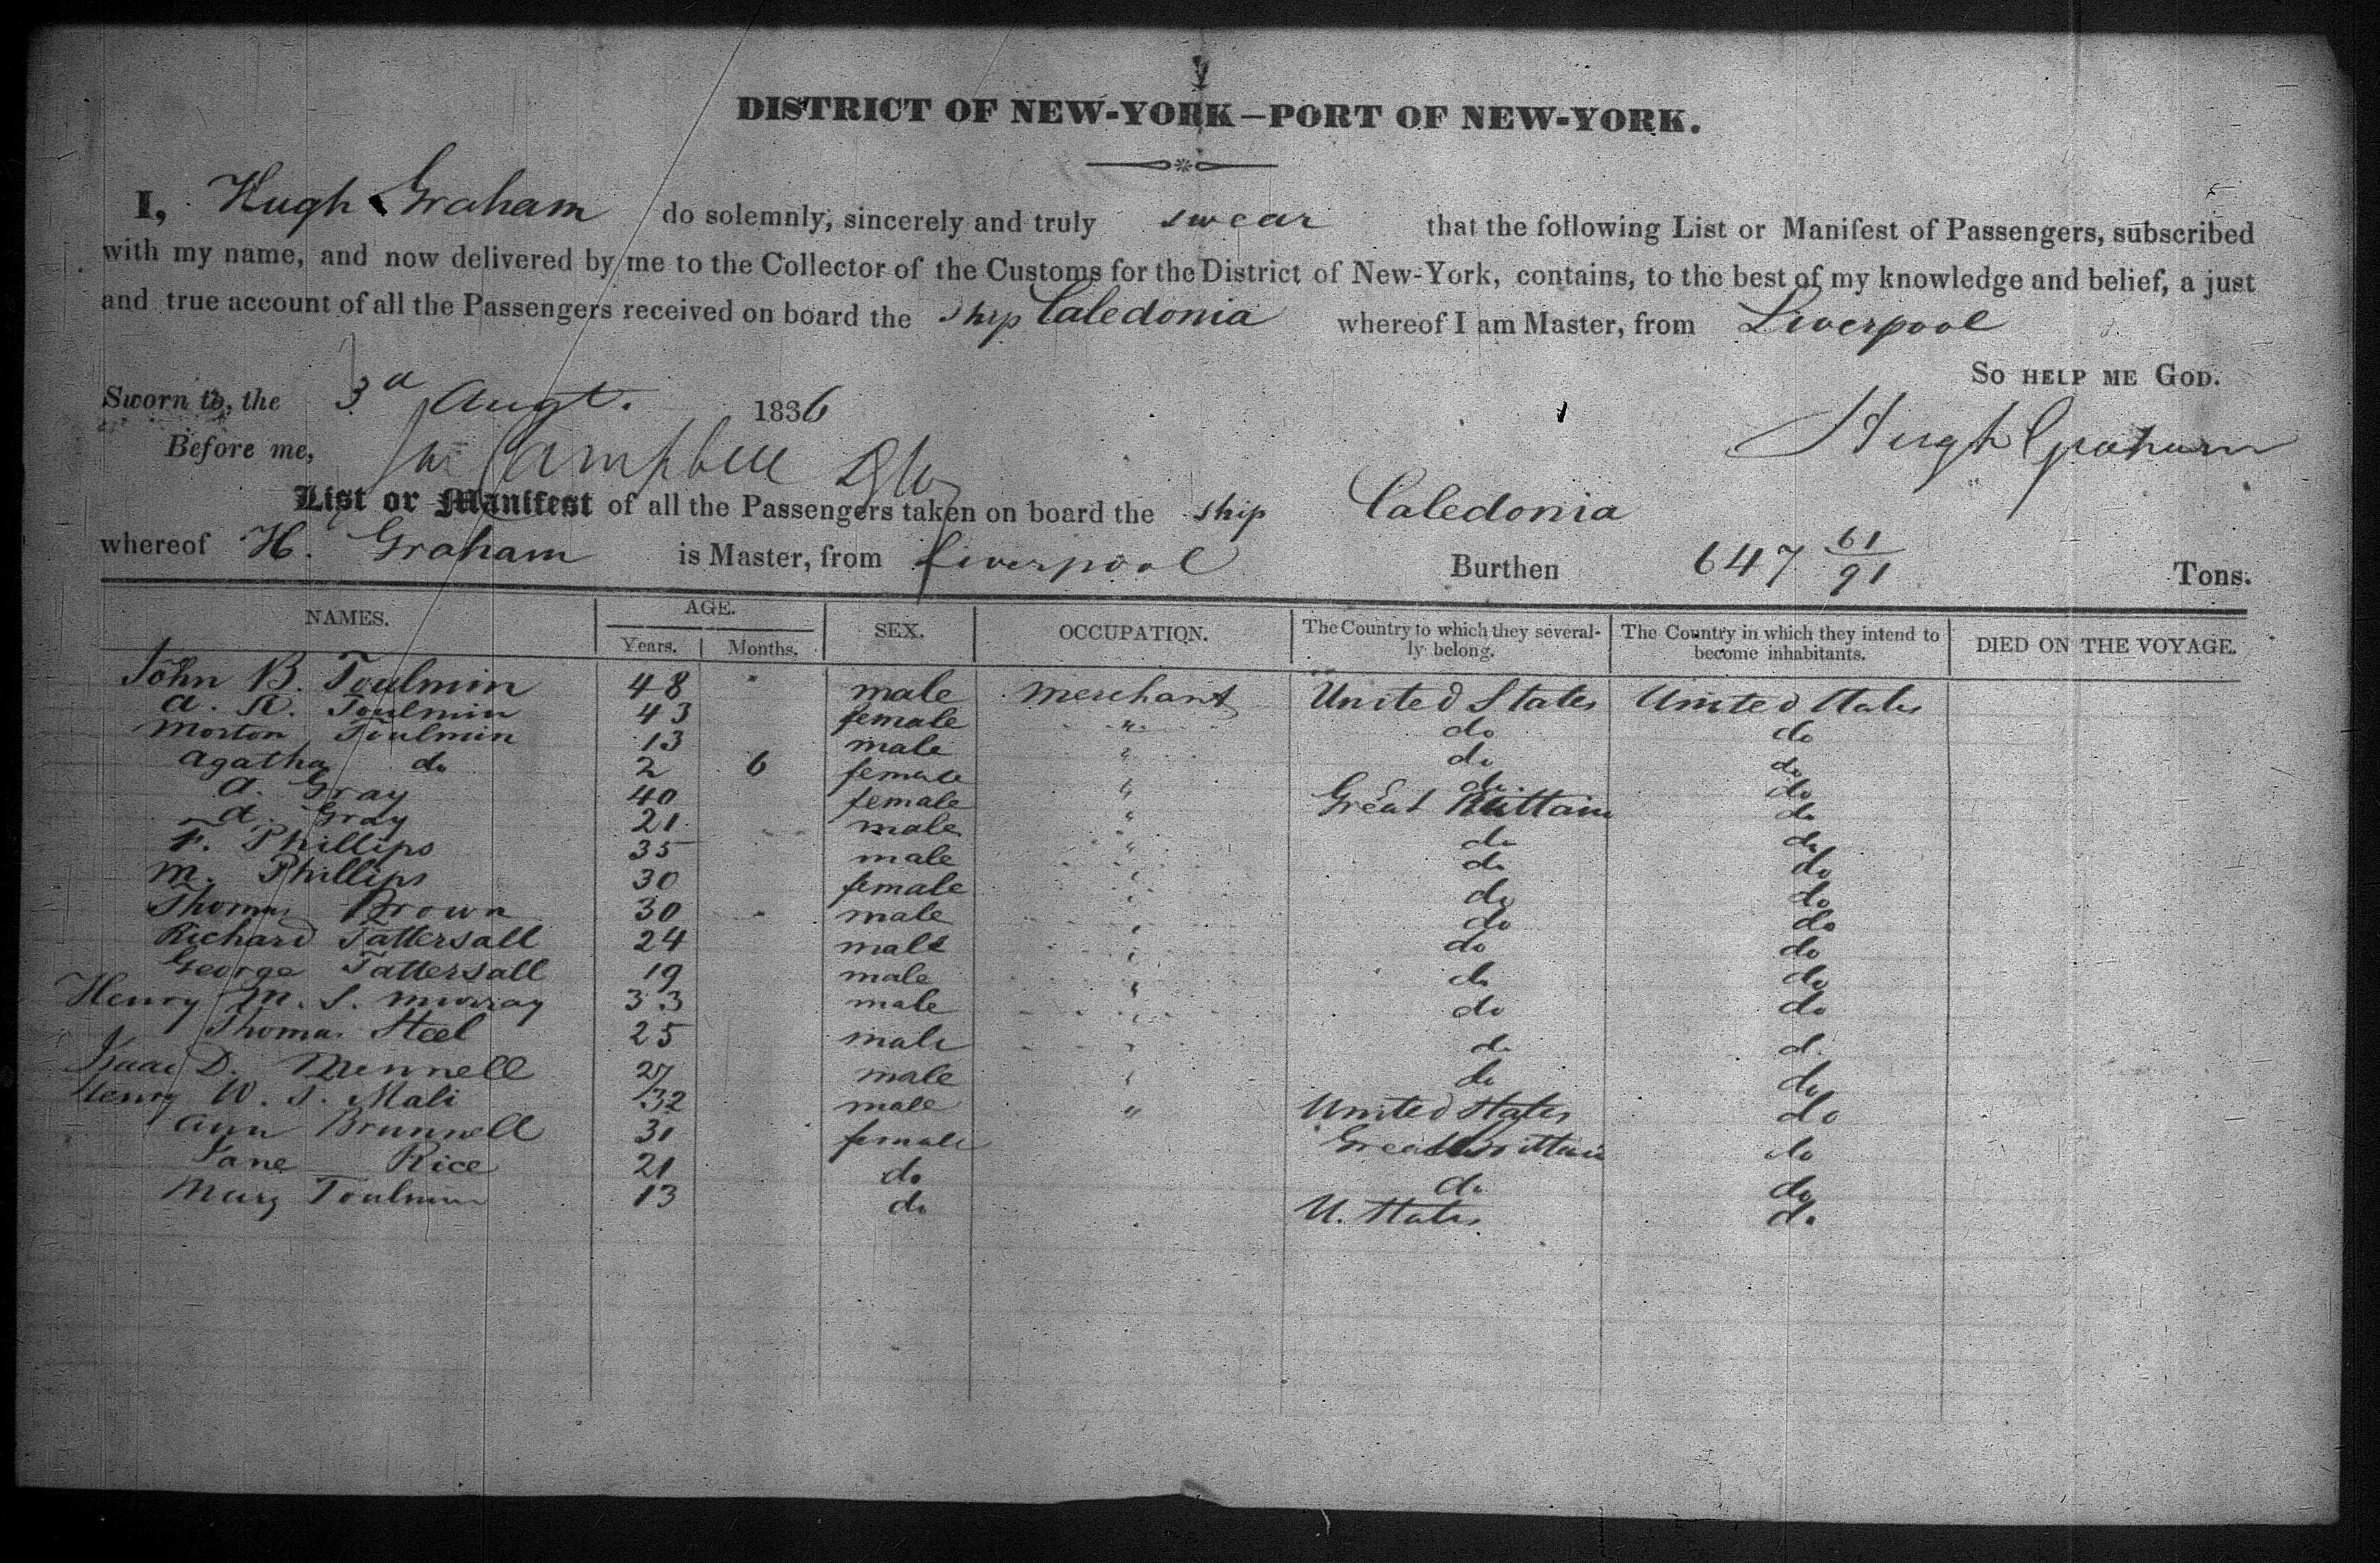 DISTRICT OF NEW-YORK—PORT OF NEW-YORK.
I, Hugh Graham do solemnly, sincerely and truly swear that the following List or Manifest of Passengers, subscribed
with my name, and now delivered by me to the Collector of the Customs for the District of New-York, contains, to the best of my knowledge and belief, a just
and true account of all the Passengers received on board the ship Caledonia whereof I am Master, from Liverpool
SO HELP ME GOD.
Sworn to, the 3d Augt. 1836
Hugh Graham
Before me, Campbell
List or Manifest of all the Passengers taken on board the ship Caledonia
whereof H. Graham is Master, from Liverpool Burthen 647 61/91 Tons.
NAMES. AGE. Years. Months. SEX. OCCUPATION. The Country to which they severally belong. The Country in which they intend to become inhabitants. DIED ON THE VOYAGE.
John B. Toulmin 48 male merchant United States United States
A. R. Toulmin 43 female " do do
Morton Toulmin 13 male " do do
Agatha do 2 6 female " do do
A. Gray 40 female " Great Brittain do
A. Gray 21 male " do do
F. Phillips 35 male " do do
M. Phillips 30 female " do do
Thomas Brown 30 male " do do
Richard Tattersall 24 male " do do
George Tattersall 19 male " do do
Henry M. S. Murray 33 male " do do
Thomas Steel 25 male " do do
Isaac D. Mennell 27 male " do do
Henry W. T. Mali 32 male " United States do
Ann Brunnell 31 female Great Brittain do
Jane Rice 21 do do do
Mary Toulmin 13 do U. States do